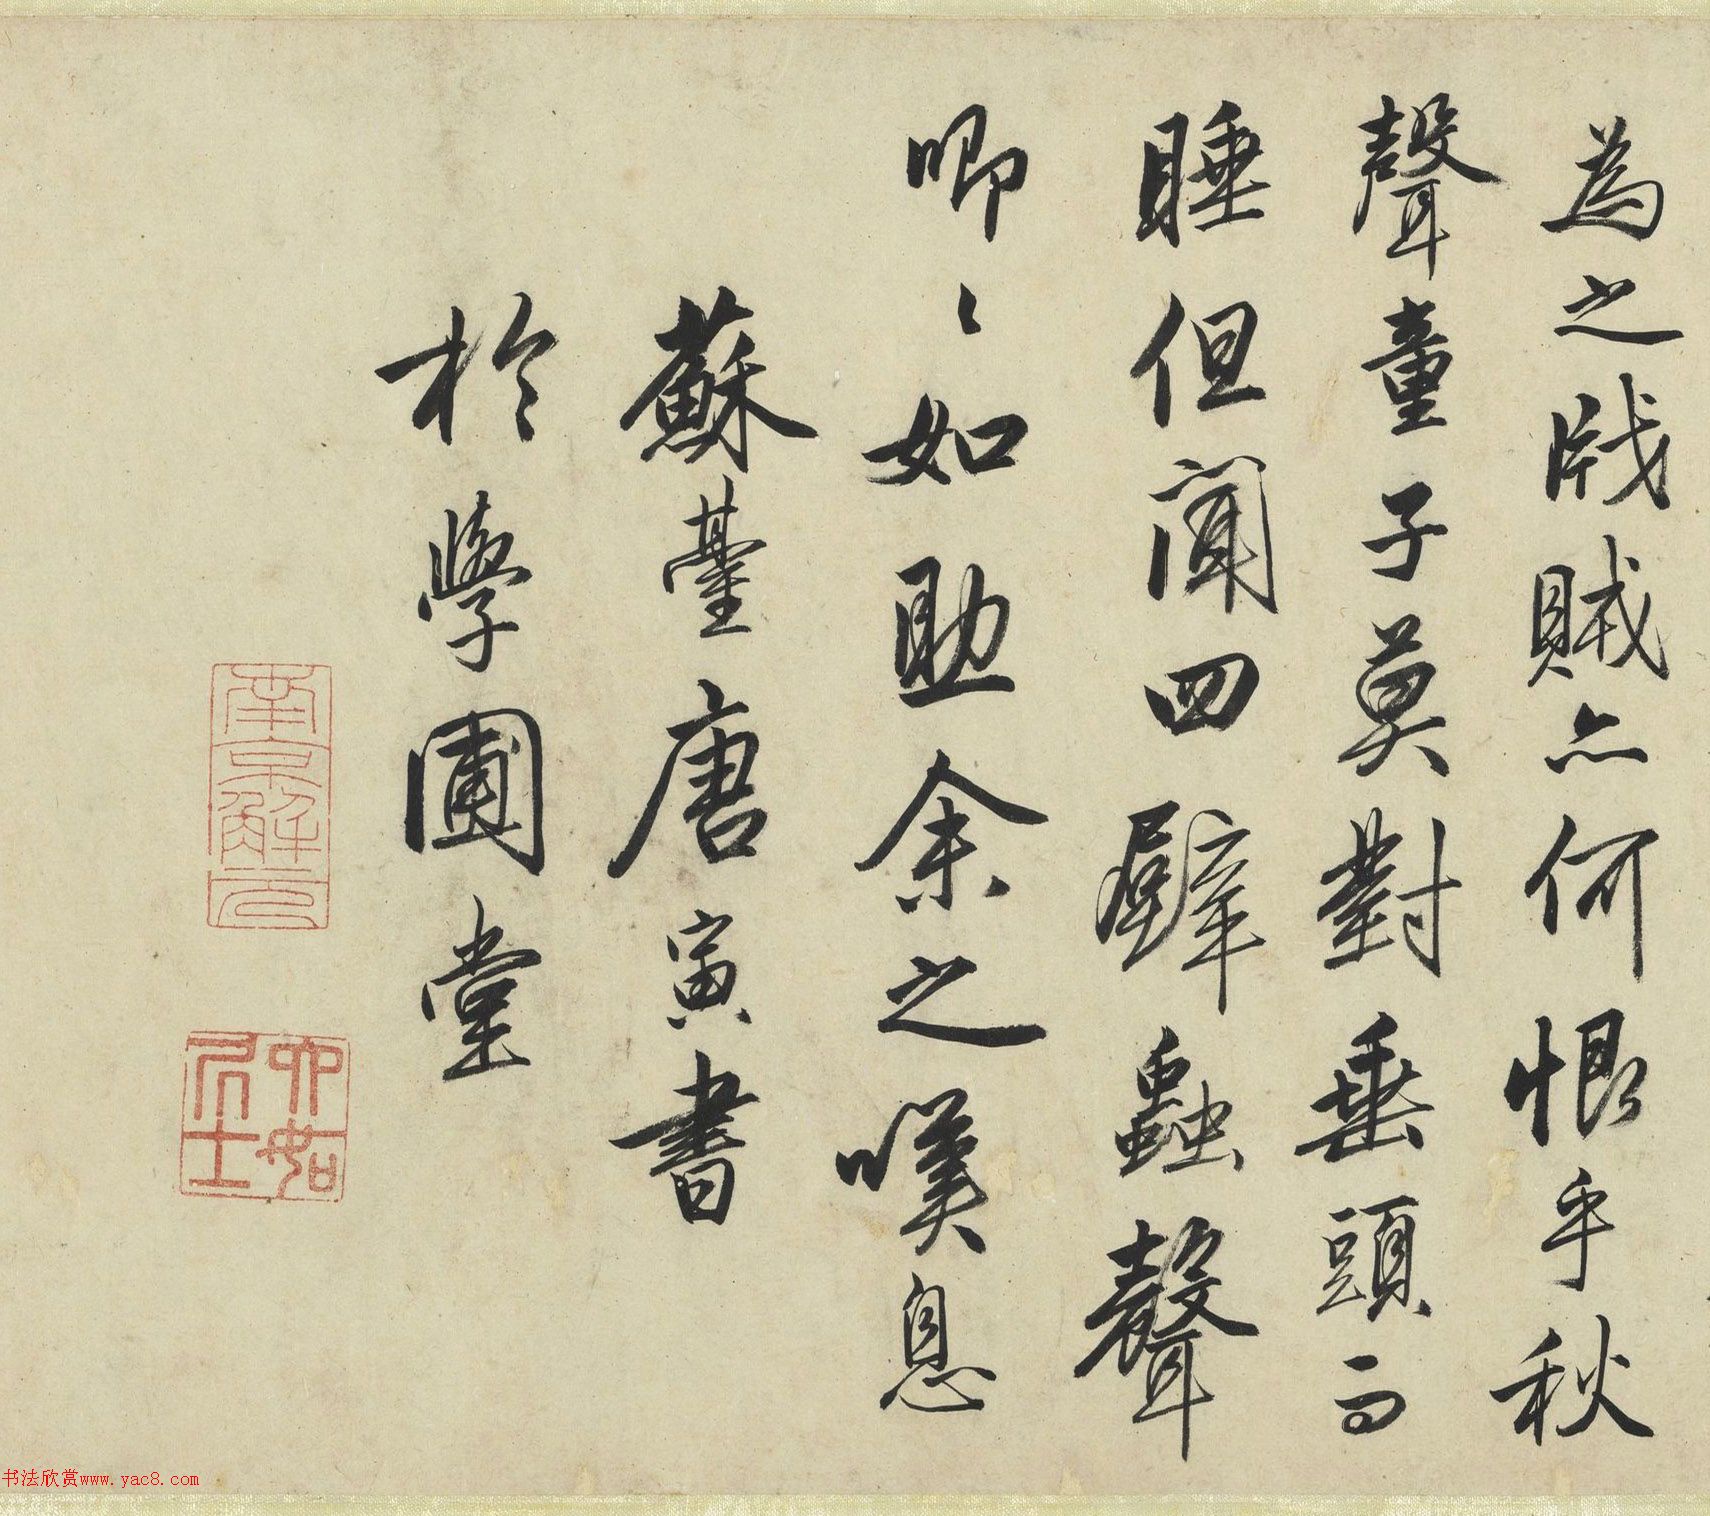 為之戕賊亦何恨乎秋
聲童子莫對垂頭而
睡但聞四壁蟲聲
唧〻如助余之嘆息
蘇臺唐寅書
於學圃堂
南京解元
六如居士
书法欣赏www.yac8.com